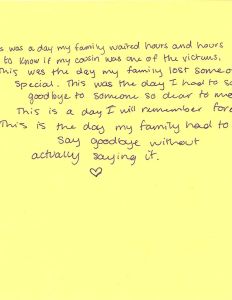 s was a day my family waited hours and hours
to know if my cousin was one of the victims.
This was the day my family lost someo
special. This was the day I had to sa
goodbye to someone so dear to me
This is a day I will remember fore
This is the day my family had to
say goodbye without
actually saying it.